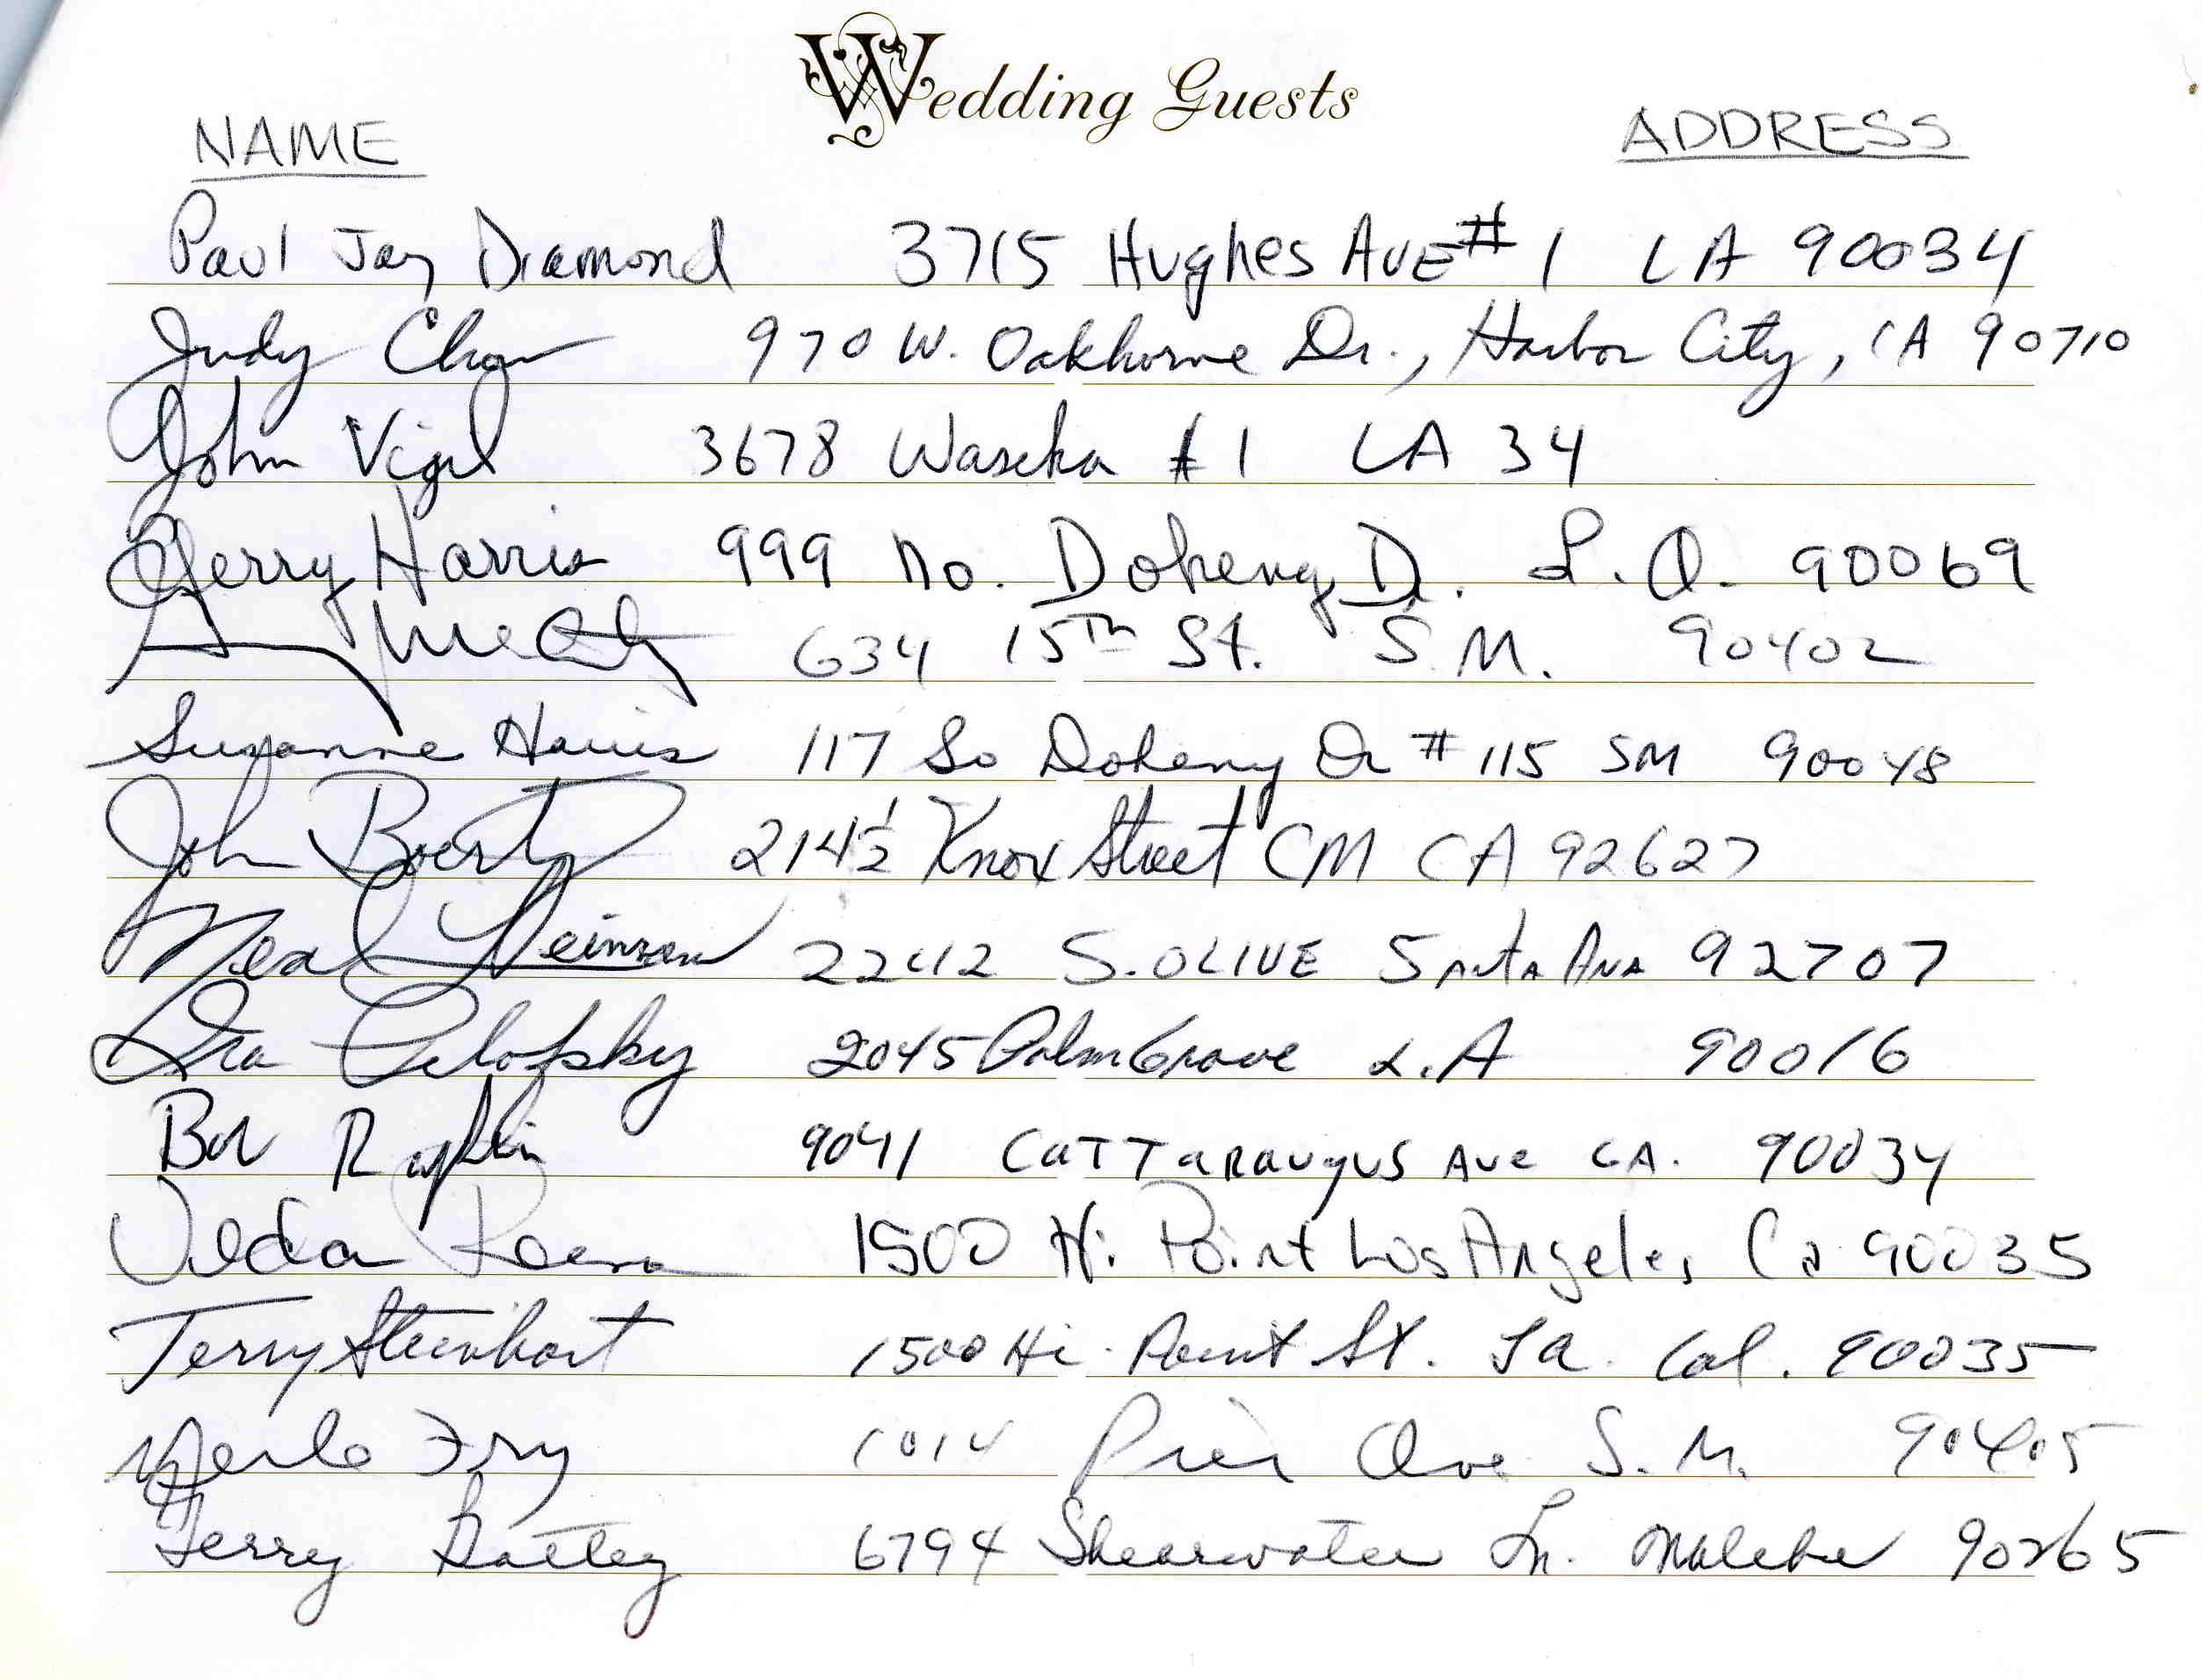 Wedding Guests
NAME ADDRESS
Paul Jay Diamond 3715 Hughes AVE #1 LA 90034
Judy Chow 970 W. Oakhorne Dr., Harbor City, CA 90710
John Vigil 3678 Waseka #1 LA 34
Gerry Harris 999 No. Doheny Dr. L.A. 90069
634 15Th St. S.M. 90402
Suzanne Harris 117 So Doheny Dr #115 SM 90048
John Boerty 214½ Knox Street CM CA 92627
Neal 2242 S. OLIVE SANTA ANA 92707
Ira Pelofsky 2045 Palm Grove L.A 90016
Bob 9041 CATTARAUGUS AVE LA. 90034
Veda 1500 Hi Point Los Angeles, Ca 90035
Terry Steinhart 1500 Hi. Point St. La. Cal. 90035
Merle Fry 1014 Pier Ave S.M. 90405
Jerry Battey 6794 Shearwater Ln. Malibu 90265